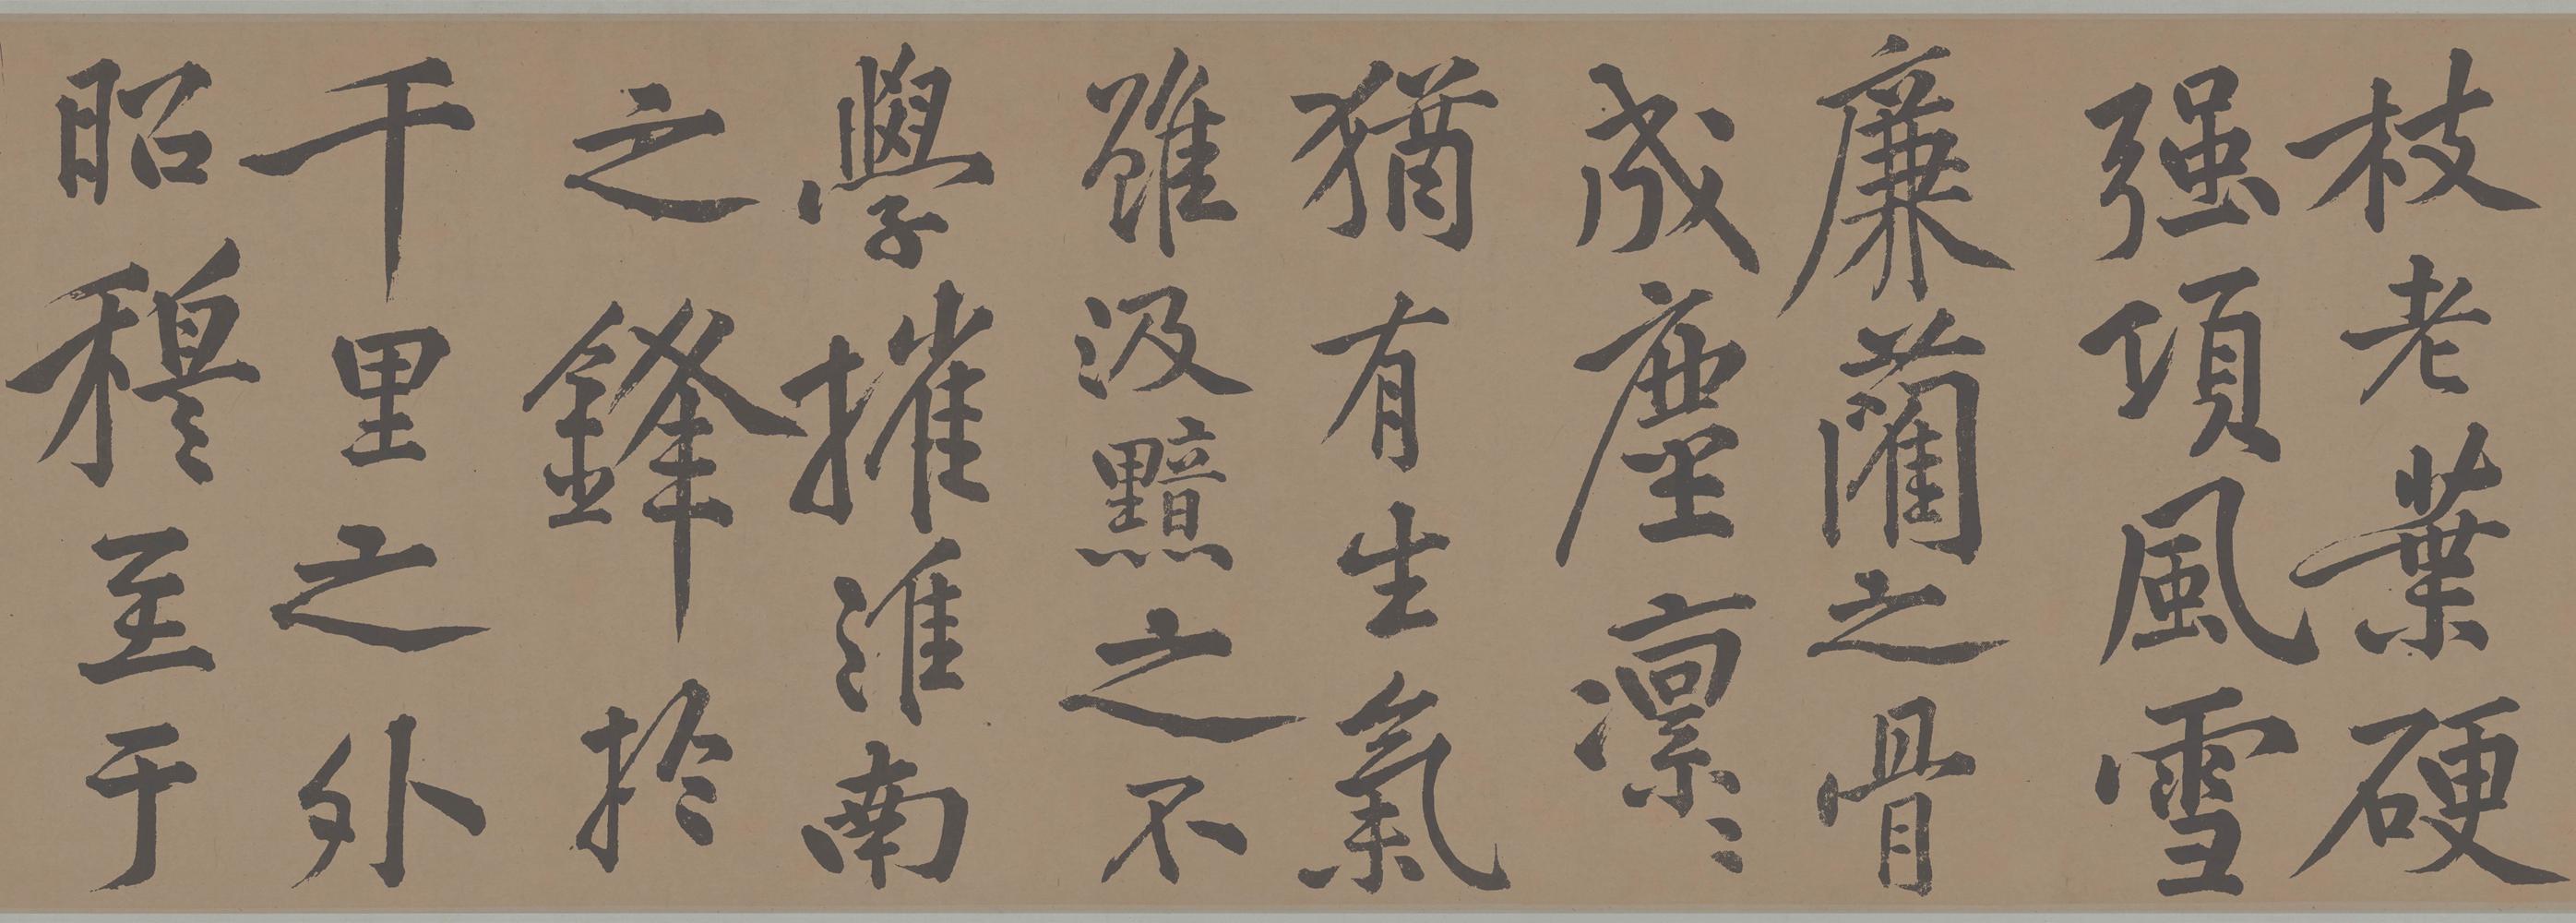 枝老葉硬
强項風雪
廉藺之骨
成塵凛〻
猶有生氣
雖汲黯之不
學摧淮南
之鋒於
千里之外
昭穆至于